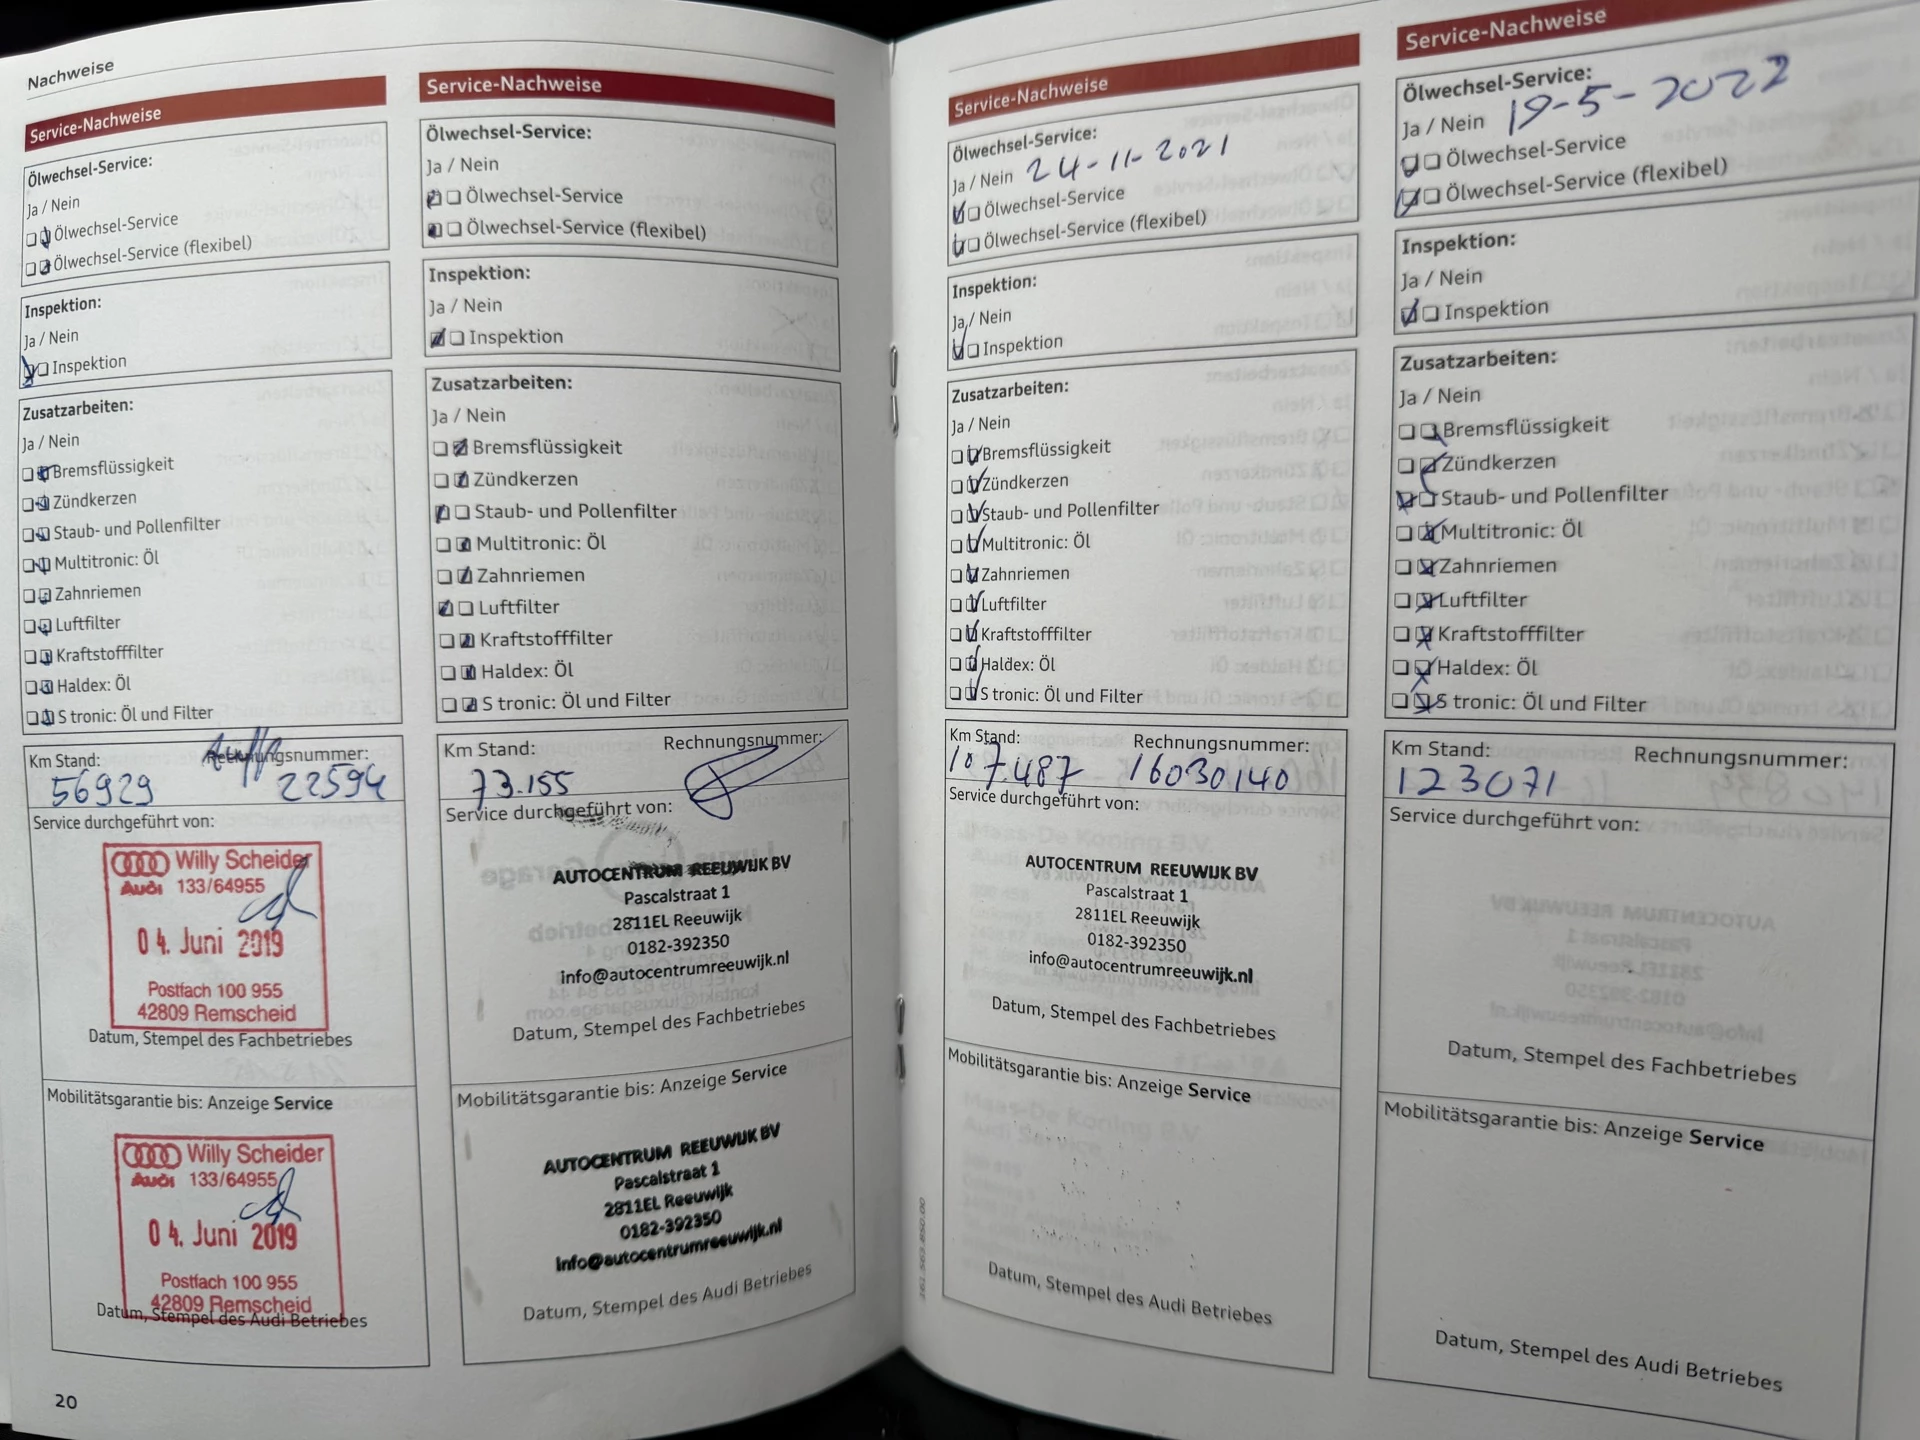 Nachweise
Service-Nachweise
Ölwechsel-Service:
Ja / Nein
Ölwechsel-Service
Ölwechsel-Service (flexibel)
Inspektion:
Ja / Nein
Inspektion
Zusatzarbeiten:
Ja / Nein
Bremsflüssigkeit
Zündkerzen
Staub- und Pollenfilter
Multitronic: Öl
Zahnriemen
Luftfilter
Kraftstofffilter
Haldex: Öl
S tronic: Öl und Filter
Km Stand: Rechnungsnummer:
56929 22594
Service durchgeführt von:
Willy Scheider
Audi 133/64955
04. Juni 2019
Postfach 100 955
42809 Remscheid
Datum, Stempel des Fachbetriebes
Mobilitätsgarantie bis: Anzeige Service
Willy Scheider
Audi 133/64955
04. Juni 2019
Postfach 100 955
42809 Remscheid
Datum, Stempel des Audi Betriebes
20
Service-Nachweise
Ölwechsel-Service:
Ja / Nein
Ölwechsel-Service
Ölwechsel-Service (flexibel)
Inspektion:
Ja / Nein
Inspektion
Zusatzarbeiten:
Ja / Nein
Bremsflüssigkeit
Zündkerzen
Staub- und Pollenfilter
Multitronic: Öl
Zahnriemen
Luftfilter
Kraftstofffilter
Haldex: Öl
S tronic: Öl und Filter
Km Stand: Rechnungsnummer:
73.155
Service durchgeführt von:
AUTOCENTRUM REEUWIJK BV
Pascalstraat 1
2811EL Reeuwijk
0182-392350
info@autocentrumreeuwijk.nl
Datum, Stempel des Fachbetriebes
Mobilitätsgarantie bis: Anzeige Service
AUTOCENTRUM REEUWIJK BV
Pascalstraat 1
2811EL Reeuwijk
0182-392350
info@autocentrumreeuwijk.nl
Datum, Stempel des Audi Betriebes
Service-Nachweise
Ölwechsel-Service:
Ja / Nein 24-11-2021
Ölwechsel-Service
Ölwechsel-Service (flexibel)
Inspektion:
Ja / Nein
Inspektion
Zusatzarbeiten:
Ja / Nein
Bremsflüssigkeit
Zündkerzen
Staub- und Pollenfilter
Multitronic: Öl
Zahnriemen
Luftfilter
Kraftstofffilter
Haldex: Öl
S tronic: Öl und Filter
Km Stand: Rechnungsnummer:
107.487 16030140
Service durchgeführt von:
AUTOCENTRUM REEUWIJK BV
Pascalstraat 1
2811EL Reeuwijk
0182-392350
info@autocentrumreeuwijk.nl
Datum, Stempel des Fachbetriebes
Mobilitätsgarantie bis: Anzeige Service
Datum, Stempel des Audi Betriebes
Service-Nachweise
Ölwechsel-Service:
Ja / Nein 19-5-2022
Ölwechsel-Service
Ölwechsel-Service (flexibel)
Inspektion:
Ja / Nein
Inspektion
Zusatzarbeiten:
Ja / Nein
Bremsflüssigkeit
Zündkerzen
Staub- und Pollenfilter
Multitronic: Öl
Zahnriemen
Luftfilter
Kraftstofffilter
Haldex: Öl
S tronic: Öl und Filter
Km Stand: Rechnungsnummer:
123071
Service durchgeführt von:
Datum, Stempel des Fachbetriebes
Mobilitätsgarantie bis: Anzeige Service
Datum, Stempel des Audi Betriebes